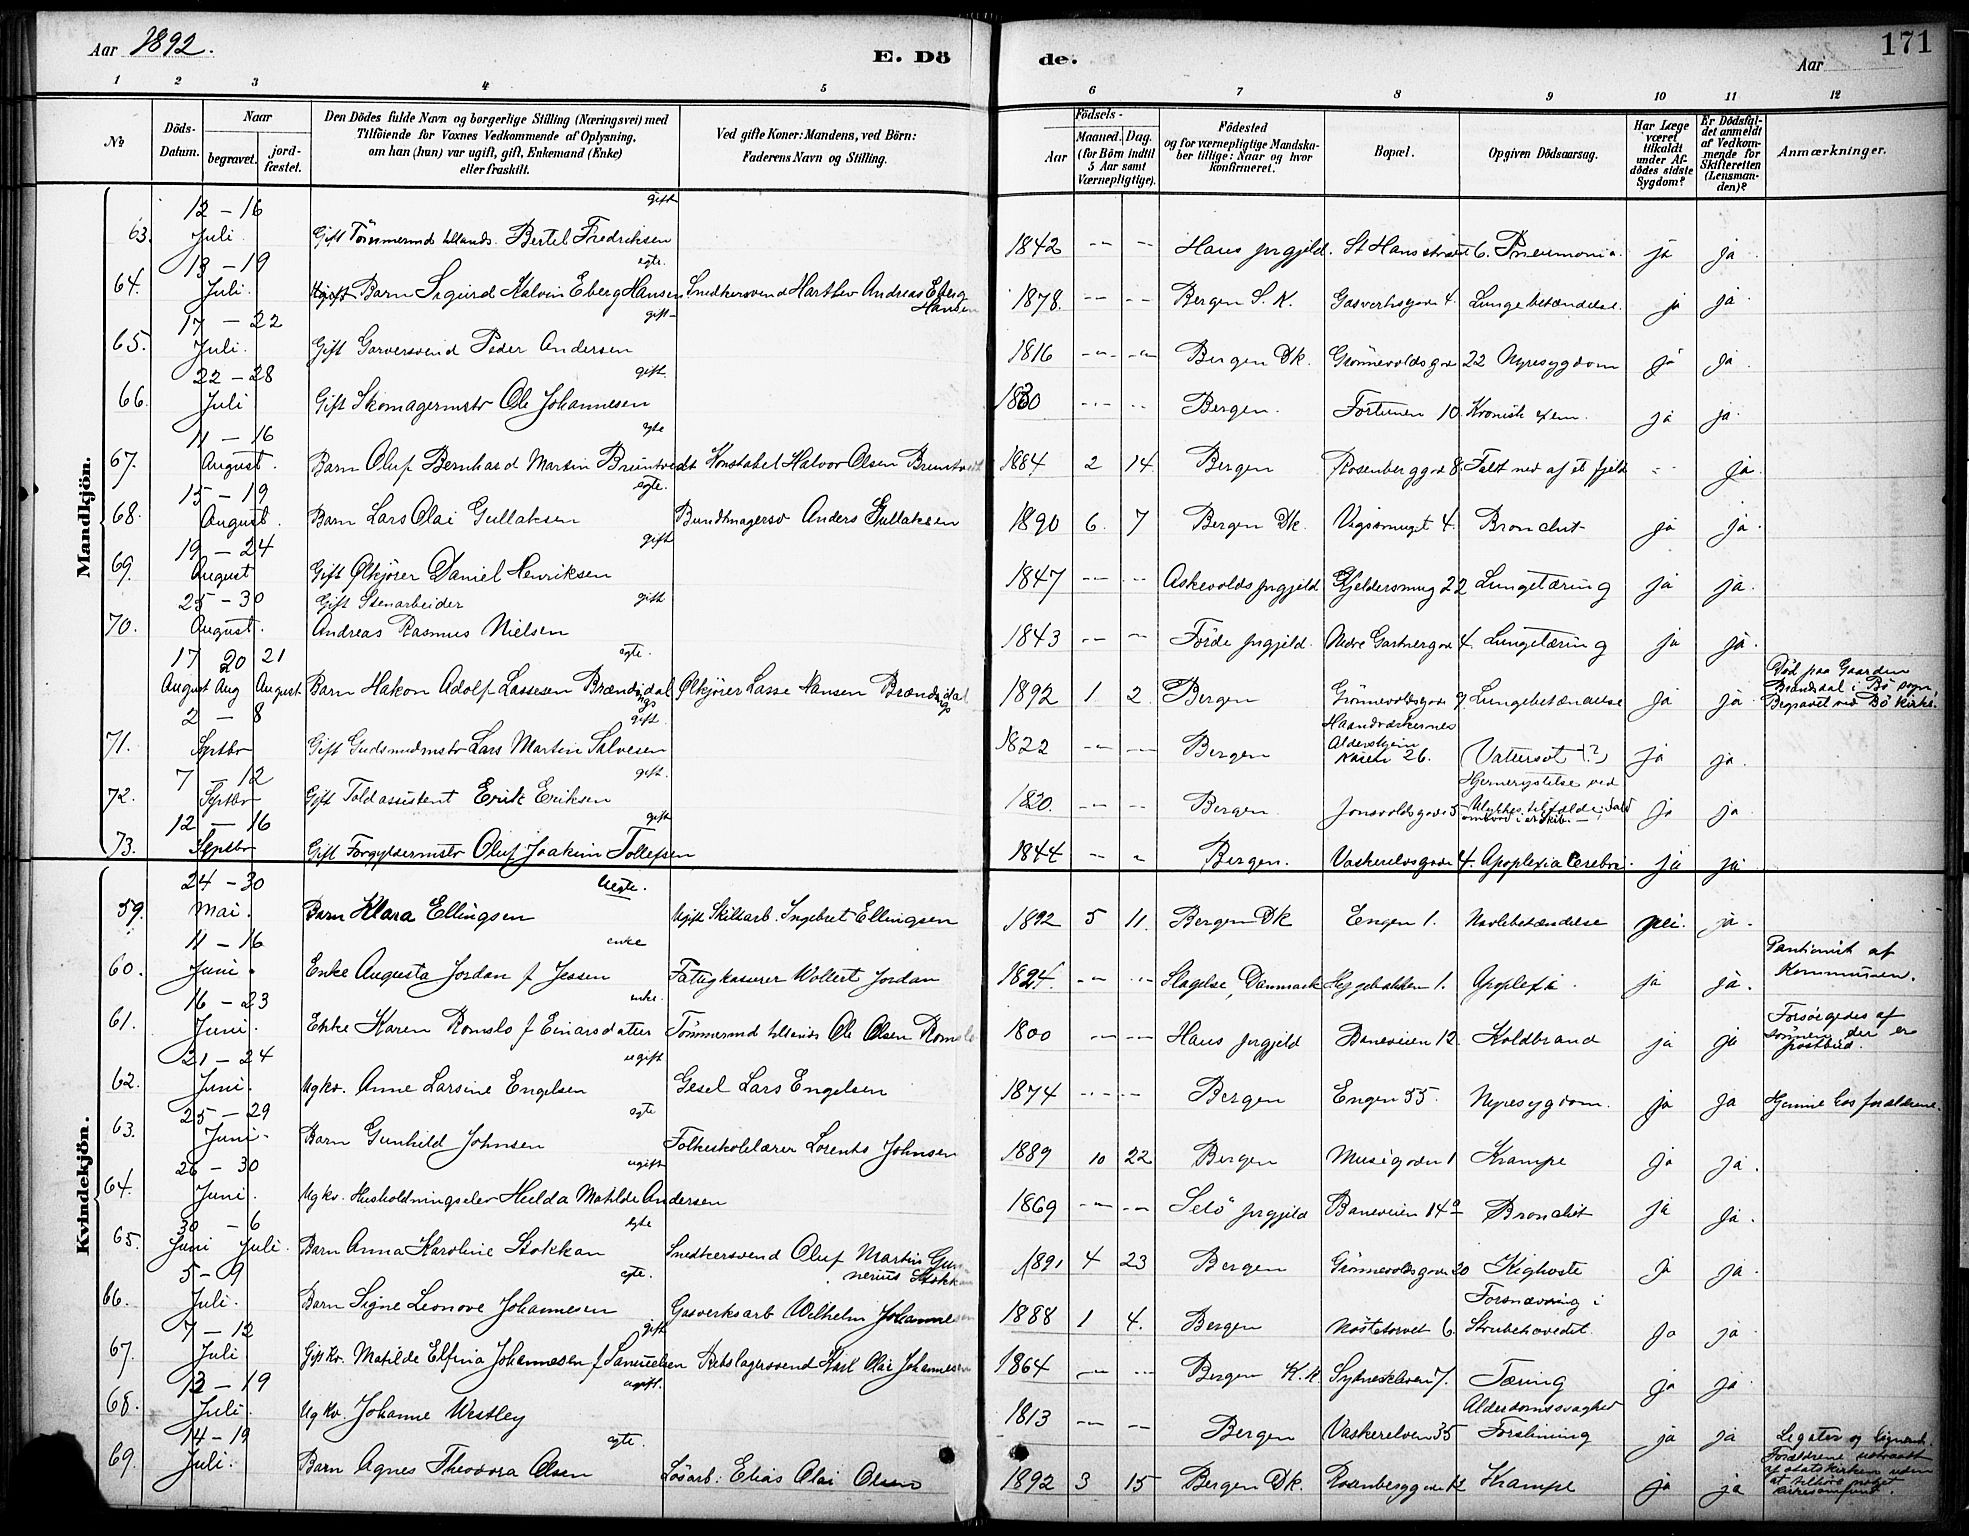 Aar 1892.
E. Döde.
Aar
171
1 2 3 4 5 6 7 8 9 10 11 12
No
Döds-Datum.
Naar
begravet.
jordfæstet.
Den Dödes fulde Navn og borgerlige Stilling (Næringsvei) med
Tilföiende for Voxnes Vedkommende af Oplysning,
om han (hun) var ugift, gift, Enkemand (Enke)
eller fraskilt.
Ved gifte Koner: Mandens, ved Börn:
Faderens Navn og Stilling.
Födsels-
Aar
Maaned. Dag.
(for Börn indtil
5 Aar samt
Værnepligtige).
Födested
og for værnepligtige Mandska-
ber tillige: Naar og hvor
konfirmeret.
Bopæl.
Opgiven Dödsaarsag.
Har Læge
været
tilkaldt
under Af-
dödes sidste
Sygdom?
Er Dödsfal-
det anmeldt
af Vedkom-
mende for
Skifteretten
(Lensman-
den)?
Anmærkninger.
Mandkjön.
12 - 16 gift
63. Juli. Gift Tömmermd Bertel Fredriksen 1842 -- -- Haus prgjeld. St Hansstræde 6. Pneumonia. ja ja
13 - 19 egte.
64. Juli. Barn Sigurd Kalvin Eberg Hansen Snedkersvend Harthev Andreas Eberg Hansen 1878. -- -- Bergen S. K. Gasverksgaden 4. Lungebetændelse. ja ja
17 - 22 gift
65. Juli. Gift Garversvend Peder Andersen 1816 -- -- Bergen Dk. Grønnevoldsgade 22 Nyresygdom ja ja
22 - 28 gift.
66. Juli Gift Skomagermstr Ole Johannesen 1830 -- -- Bergen. Fortunen 10. Kronisk exem. ja ja.
11 - 16 egte
67. August. Barn Oluf Bernhard Martin Bruntvedt Konstabel Halvor Olsen Bruntvedt 1884 2 14. Bergen Rosenberggd 8. Faldt ned af et fjeld -- ja.
15 - 19 egte.
68. August. Barn Lars Olai Gullaksen Bundtmagersv Anders Gullaksen 1890 6. 7 Bergen Dk. 4. Bronchit ja ja.
19 - 24 gift
69. August Gift Ølkjörer Daniel Henriksen 1847 -- -- Askevolds prgjeld Kjeldersmug 22 Lungetæring ja ja.
25 - 30 Gift Stenarbeider gift
70. August. Andreas Rasmus Nielsen 1843 -- -- Förde prgjeld. Nedre Gartnergade 4. Lungetæring ja ja.
17 20 21 egte.
August Aug August Barn Hakon Adolf Lassesen Brændsdal Ølkjörer Lasse Hansen Brændsdal 1892 1 2. Bergen Grønnevoldsgade 9 Lungebetændelse ja ja. Död paa Gaarden Brændsdal i Bö sogn, Begravet ved Bö Kirke.
2 - 8 gift.
71. Septbr Gift Lars Martin Salvesen 1822 -- -- Bergen Haandværkernes Aldershjem 26. Vatersot (?) ja ja.
7 - 12 gift.
72. Septbr Gift Toldassistent Erik Eriksen 1820. -- -- Bergen Jonsvoldsgade 5 Hjernerystelse ved Ulykkestilfælde: Fald ombord i et skib. ja ja
12 - 16 gift
73. Septbr Gift Forgyldermstr Oluf Joakim Tollefsen 1844 -- -- Bergen. Vaskerelvsgade 4. Apoplexia Cerebri. ja ja
Kvindekjön.
24 - 30 Uegte.
59. Mai. Barn Klara Ellingsen Ugift Skibsarb. Ingebret Ellingsen 1892 5 11. Bergen Dk Engen 1. Navlebetændelse nei. ja.
11 - 16 enke
60. Juni. Enke Augusta Jordan f Jessen Fattigkasserer Woltert Jordan 1824. -- -- Slagelse, Danmark Hyggebakken 1. Apoplexia. ja ja. Pantionist af Kommunen.
16 - 23 enke.
61. Juni. Enke Karen Romslo f Einarsdatter Tömmermd Ole Olsen Romslo 1800 -- -- Haus prgjeld Baneveien 12. Koldbrand ja ja Forsörgedes af sönnen, der er postbud.
21 - 24 ugift
62. Juni. Ugkv. Anne Larsine Engelsen Gesel Lars Engelsen 1874 -- -- Bergen Engen 55. Nyresygdom. ja ja Hjemme hos forældrene.
25 - 29 egte
63. Juni. Barn Gunhild Johnsen Folkeskolelærer Lorents Johnsen 1889 10 22 Bergen Museigaden 1 Krampe ja ja.
26 - 30 ugift
64. Juni. Ugkv. Husholdningselev Hulda Matilde Andersen 1869 -- -- Selö prgjeld Baneveien 14a Bronchit ja ja.
30 - 6 egte
65. Juni Juli. Barn Anna Karoline Stokkan Snedkersvend Oluf Martin Gunnerius Stokkan 1891 4 23 Bergen Grønnevoldsgaden 20 Kighoste ja ja.
5 - 9 egte.
66. Juli. Barn Signe Leonore Johannesen Gasverksarb Wilhelm Johannesen 1888 1 4. Bergen Nöstetorvet 6. Forsnævring i Strubehovedet. ja ja
7 - 12 gift
67. Juli Giftkv. Matilde Elfina Johannesen f Samuelsen Karl Olai Johannesen 1864 -- -- Bergen K. K. Sydneskleven 7. Tæring ja ja.
13 - 19 ugift.
68. Juli. Ugkv. Johanne Westley 1813 -- -- Bergen Vaskerelven 35 Alderdomssvaghed Forslimning ja ja Legater og
14 - 19 egte.
69. Juli. Barn Agnes Theodora Olsen Lösarb: Elias Olai Olsen 1892 3 15 Bergen Dk. Rosenberggaden 12 Krampe ja ja Forældrene udtraadt af statskirken uden at tilhöre noget kirkesamfund.